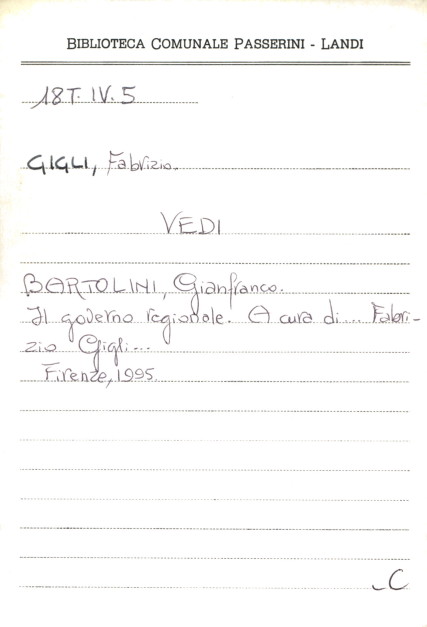 BIBLIOTECA COMUNALE PASSERINI - LANDI
18T. IV. 5
GIGLI, Fabrizio.
VEDI
BARTOLINI, Gianfranco.
Il governo regionale. A cura di... Fabri-
zio Gigli...
Firenze, 1995.
C